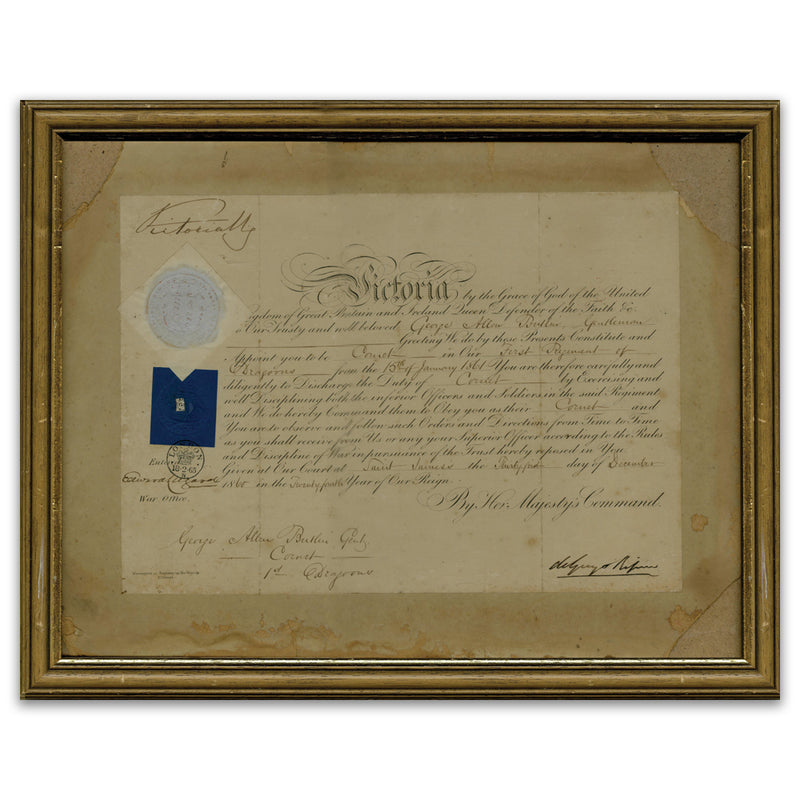 Victoria R
Victoria, by the Grace of God of the United
Kingdom of Great Britain and Ireland Queen Defender of the Faith &c.
To Our Trusty and well beloved George Allen Butlin, Gentleman
Greeting We do by these Presents Constitute and
Appoint you to be Cornet in Our First Regiment of
Dragoons from the 15th of January 1861 You are therefore carefully and
diligently to Discharge the Duty of Cornet by Exercising and
well Disciplining both the inferior Officers and Soldiers in the said Regiment
and We do hereby Command them to Obey you as their Cornet and
You are to observe and follow such Orders and Directions from Time to Time
as you shall receive from Us or any your Superior Officer according to the Rules
and Discipline of War in pursuance of the Trust hereby reposed in You
Given at Our Court at Saint James's the day of December
1860 in the Twenty fourth Year of Our Reign.
By Her Majesty's Command.
Entered
LONDON
18·2·65
Edward
War Office.
George Allen Butlin Gent.
Cornet
1st Dragoons
de Grey & Ripon